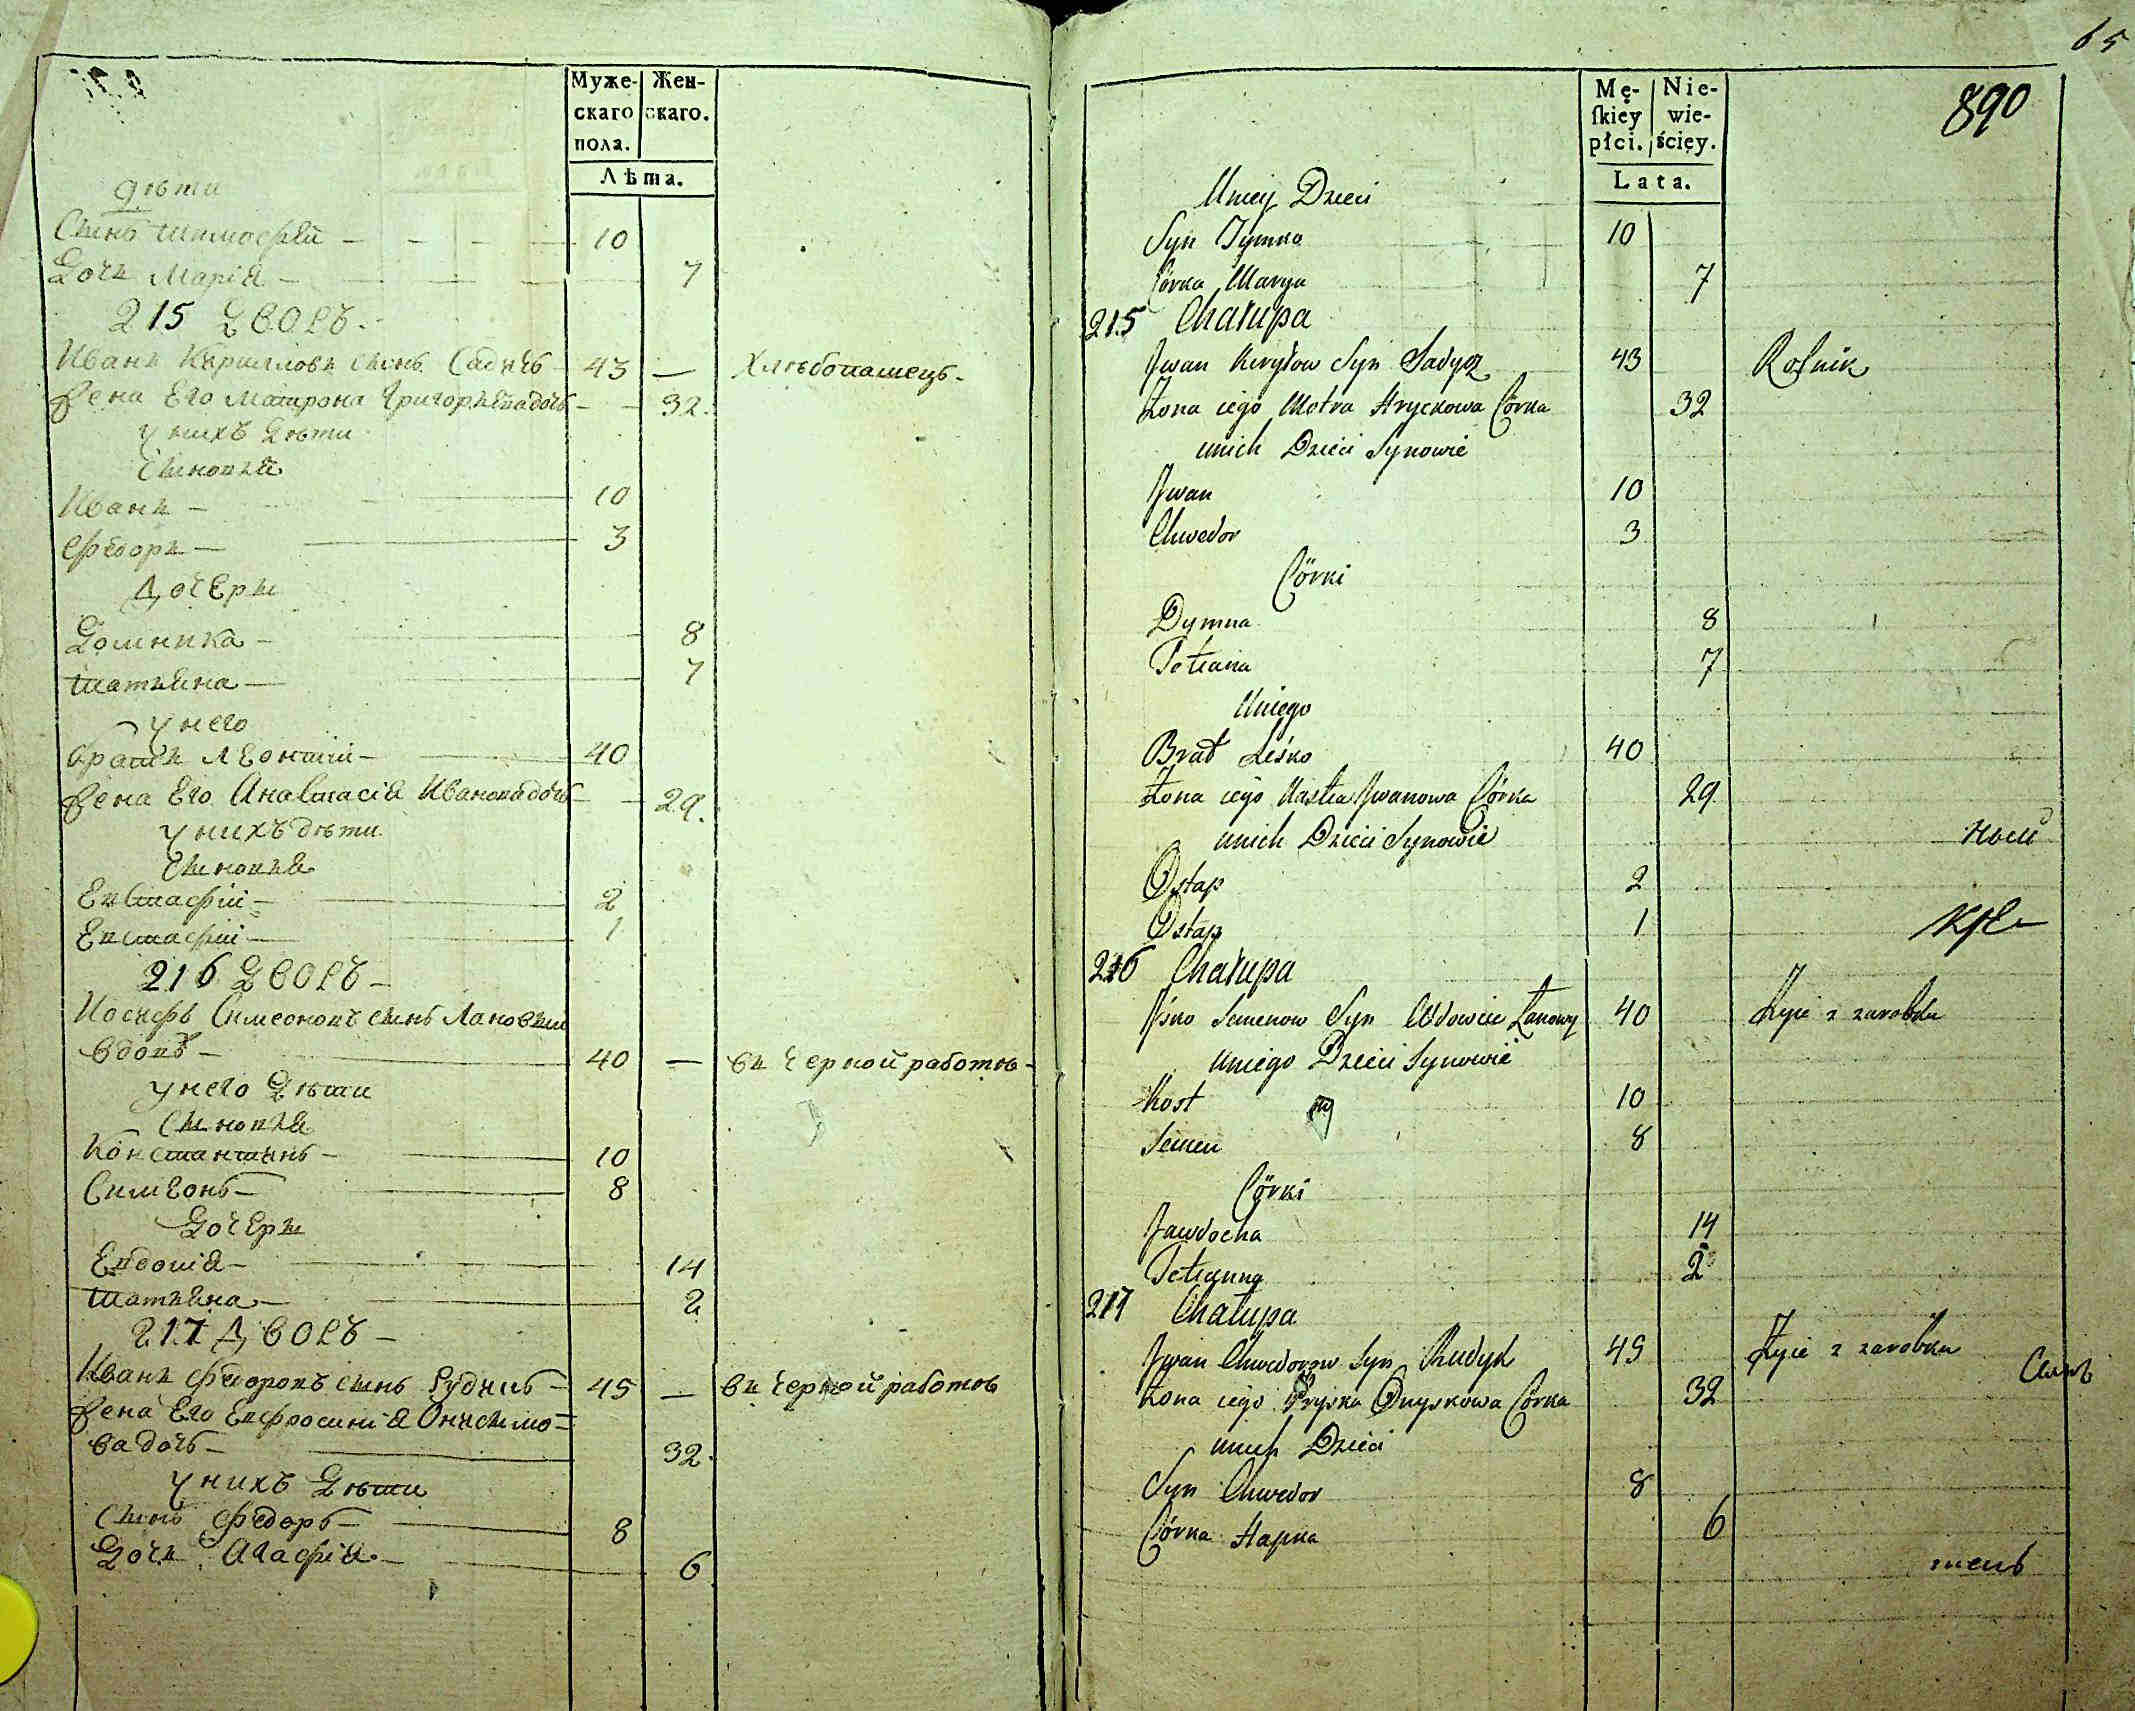 Муже-
скаго
пола.
Жен-
скаго.
Лѣта.
дѣти
Сынъ Тимофѣй — 10
Дочь Марія — 7
215 Дворъ.
Иванъ Кирилловъ сынъ Садичь 43 — Хлѣбопашецъ.
Жена Его Матрона Григорьева дочь — 32.
у нихъ Дѣти
Сыновья
Иванъ — 10
Федоръ — 3
Дочери
Домника — 8
Татьяна — 7
у него
братъ Леонтій — 40
Жена Его Анастасія Иванова дочь — 29.
у нихъ дѣти
Сыновья
Евстафій — 2
Евстафій — 1
216 Дворъ —
Иосифъ Симеоновъ сынъ Лановый
вдовъ — 40 — въ черной работѣ —
у него Дѣти
Сыновья
Константинъ — 10
Симеонъ — 8
Дочери
Евдокія — 14
Татьяна — 2
217 Дворъ —
Иванъ Федоровъ сынъ Рудикъ — 45 — въ черной работѣ
Жена Его Евфросинія Онисимо=
ва дочь — 32.
у нихъ Дѣти
Сынъ Федоръ — 8
Дочь Агафія — 6
65
890
Mę-
ſkiey
płci.
Nie-
wie-
ściey.
Lata.
Uniey Dzieci
Syn Tymko 10
Córka Marya 7
215 Chałupa
Jwan Kiryłow Syn Sadycz 43 Rolnik
Żona iego Motra Hryckowa Córka 32
unich Dzieci Synowie
Jwan 10
Chwedor 3
Córki
Dymna 8
Tetiana 7
Uniego
Brat Leśko 40
Żona iego Nastia Jwanowa Córka 29
unich Dzieci Synowie
Ostap 2
Ostap 1
216 Chałupa
Jśko Semenow Syn Wdowiec Łanowy 40 Żyie z zarobku
uniego Dzieci Synowie
Kost 10
Semen 8
Córki
Jawdocha 14
Tetianna 2
217 Chałupa
Jwan Chwedorow Syn Rudyk 45 Żyie z zarobku
Żona iego Pryska Onyskowa Córka 32
unich Dzieci
Syn Chwedor 8
Córka Hapka 6